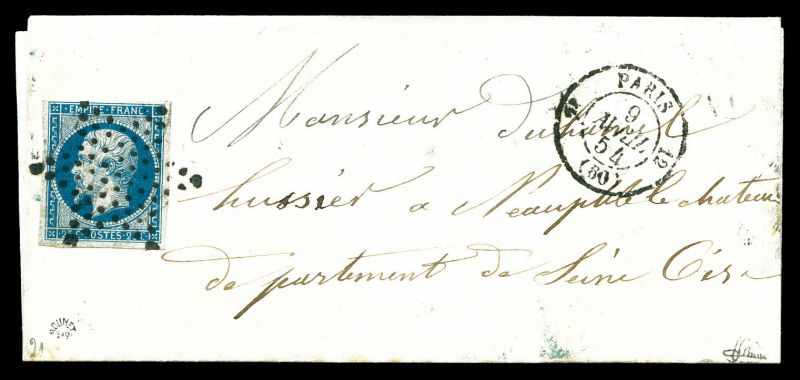 EMPIRE FRANC
PARIS
9
AVRIL
54
(60)
12
Monsieur
hussier a Neauphle le chateau
departement de Seine Oise
21